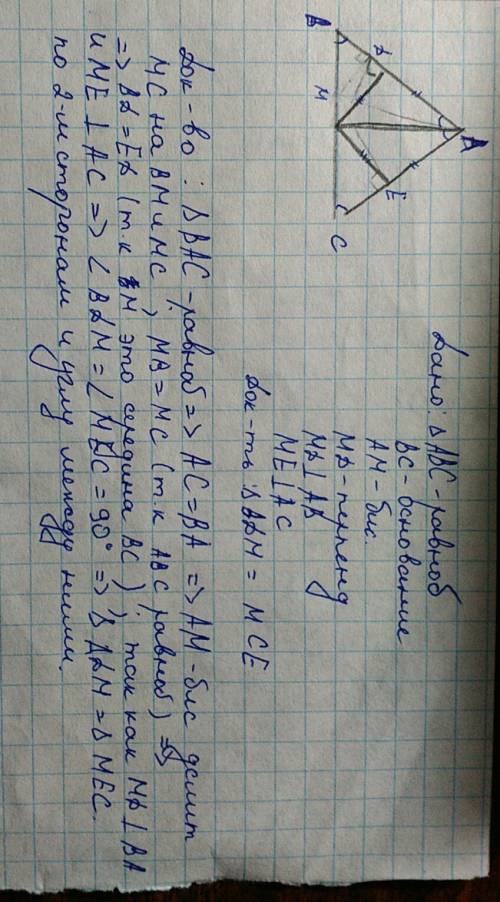 B
D
A
M
E
C
Дано: △ABC - равноб
BC - основание
AM - бис.
MD - перпенд
MD ⊥ AB
ME ⊥ AC
Док-ть: △BDM = MCE
Док-во: △BAC - равноб => AC = BA => AM - бис делит
MC на BM и MC, MB = MC (т.к ABC равноб) =>
=> BD = ED (т.к M это середина BC); так как MD ⊥ BA
и ME ⊥ AC => ∠BDM = ∠MEC = 90° => △DDM = △MEC.
по 2-м сторонам и углу между ними.